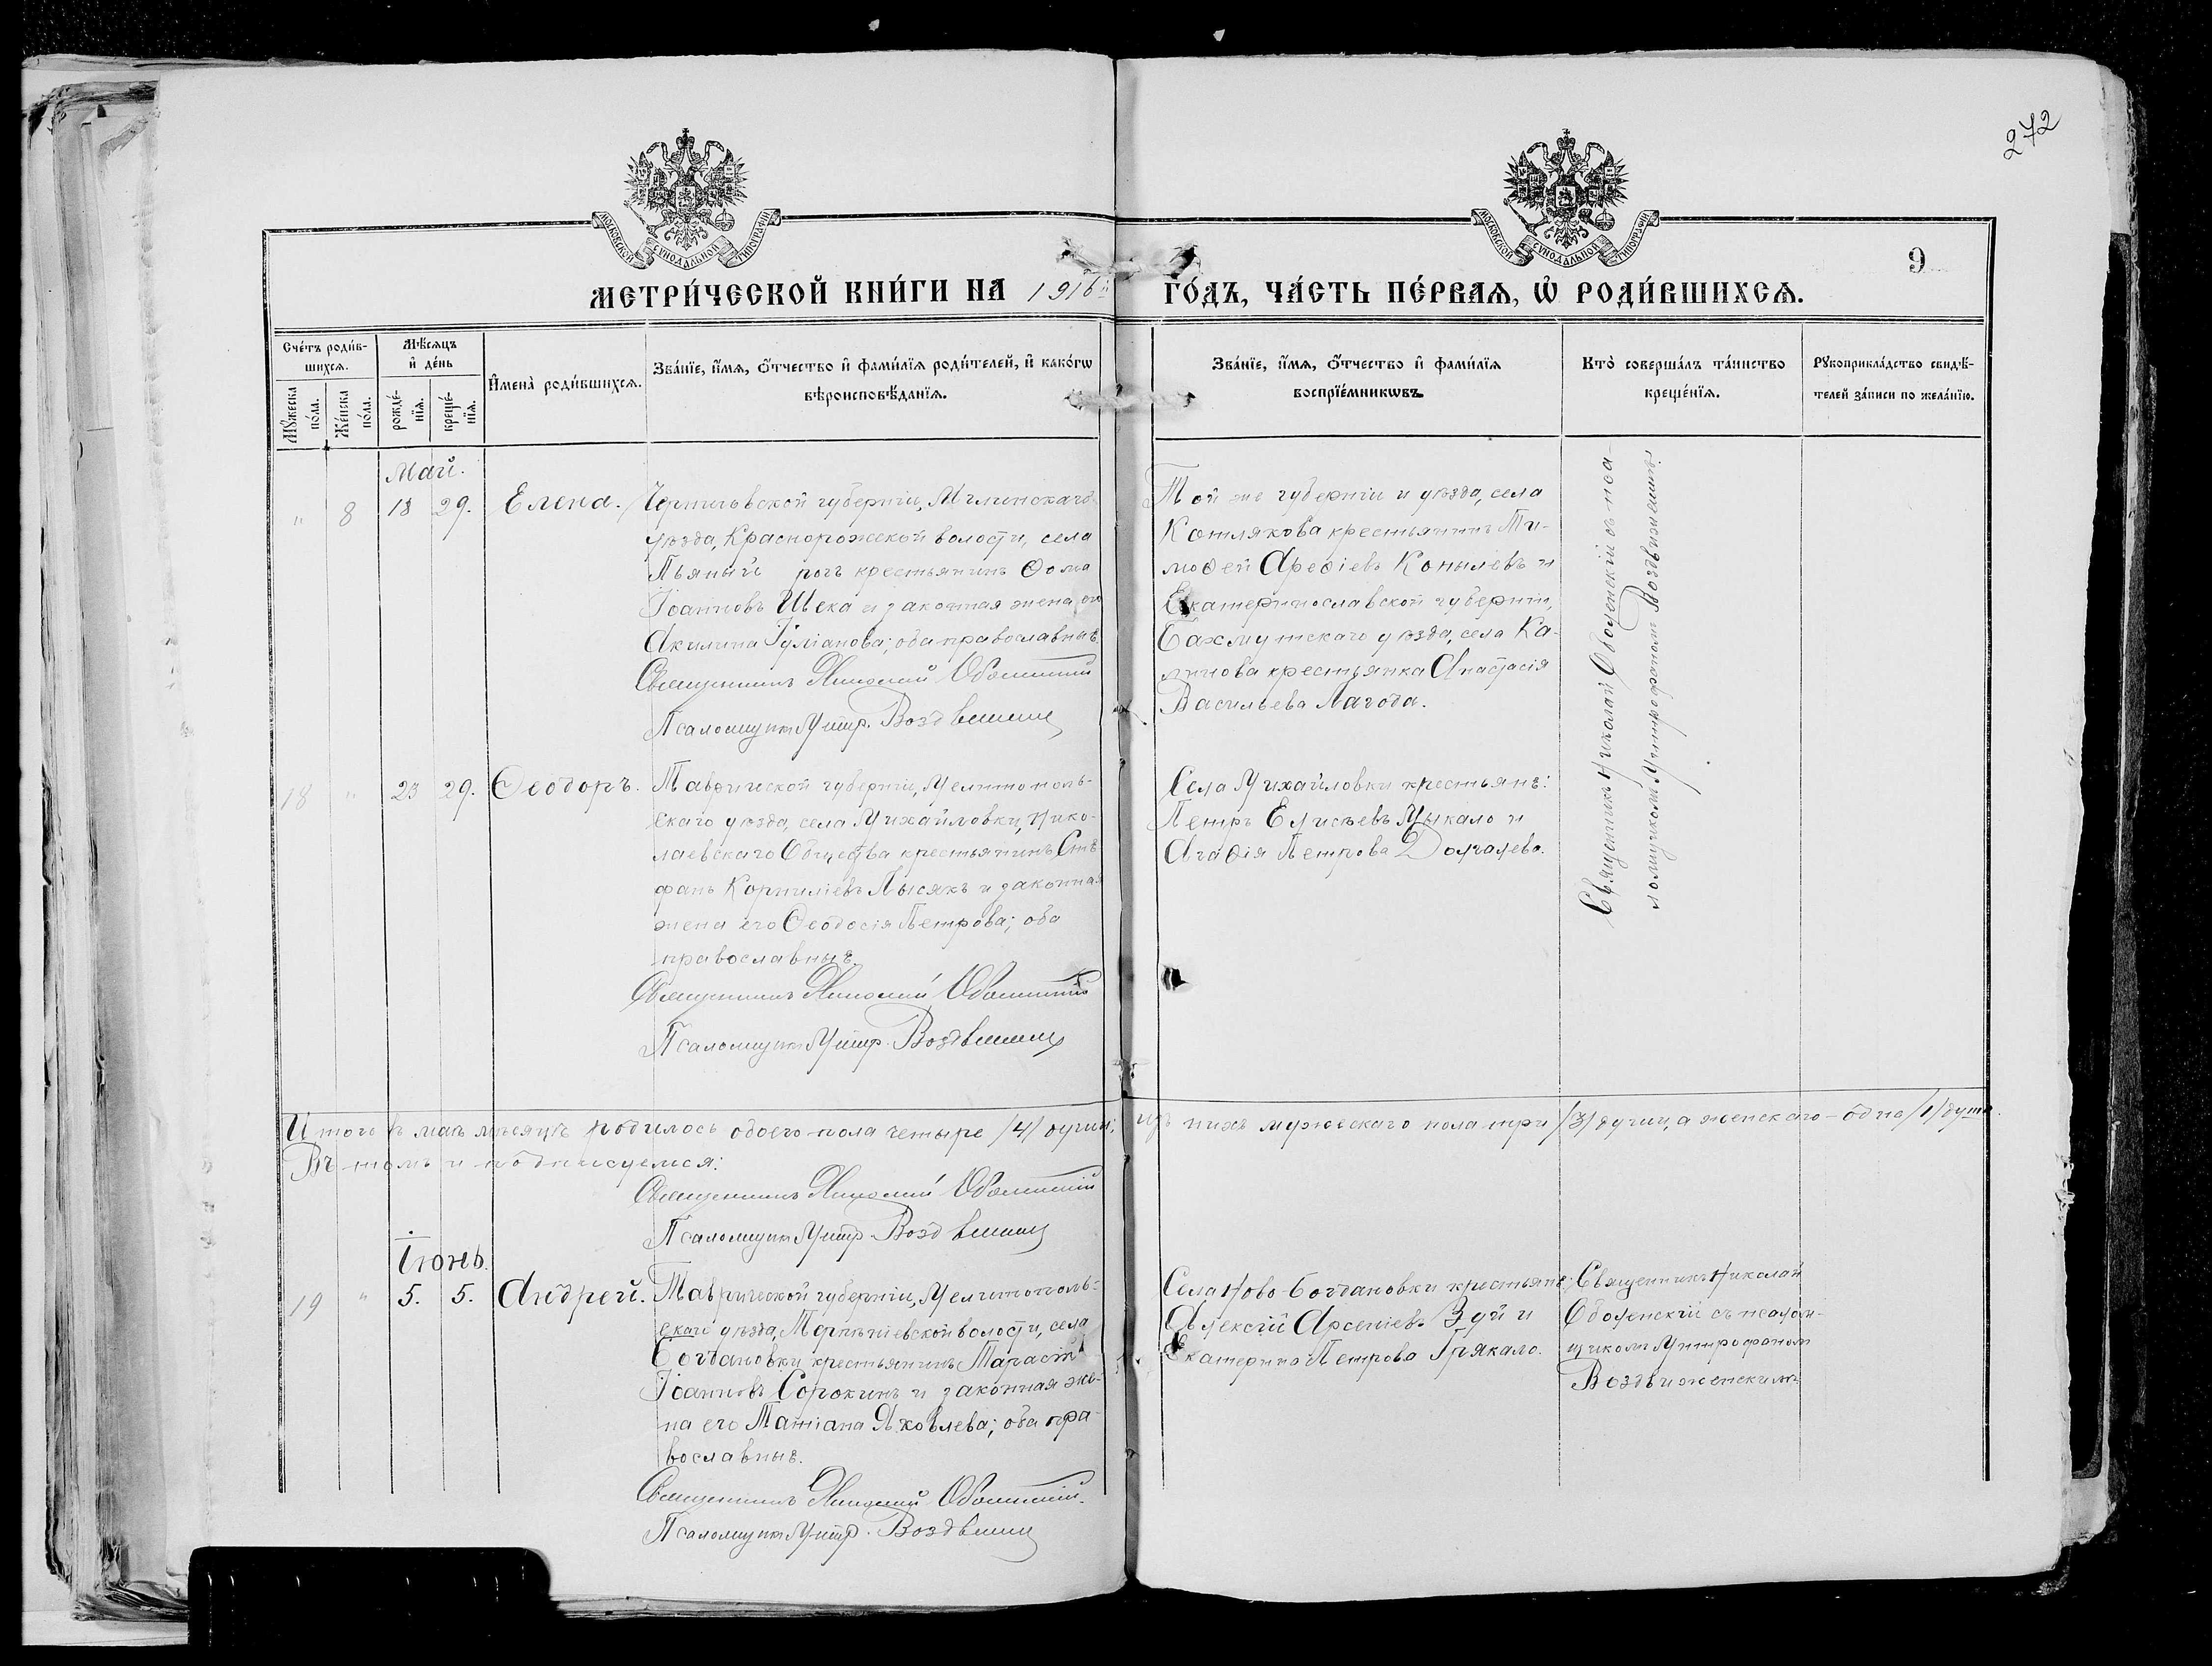 272
МОСКОВСКОЙ СѴНОДАЛЬНОЙ ТИПОГРАФІИ
МОСКОВСКОЙ СѴНОДАЛЬНОЙ ТИПОГРАФІИ
9
МЕТРИ́ЧЕСКОЙ КНИ́ГИ НА 1916й ГО́ДЪ, ЧА́СТЬ ПЕ́РВАѦ, Ѡ҆ РОДИ́ВШИХСѦ.
Сче́тъ роди́в-
шихсѧ.
Мꙋ́жеска по́ла.
Же́нска по́ла.
Мѣ́сѧцъ
и҆ де́нь
рожде́-
нїѧ.
креще́-
нїѧ.
И҆мена̀ роди́вшихсѧ.
Зва́нїе, и҆́мѧ, ѻ҆́тчество и҆ фами́лїѧ роди́телей, и҆ како́гѡ
вѣроисповѣ́данїѧ.
Зва́нїе, и҆́мѧ, ѻ҆́тчество и҆ фами́лїѧ
воспрїе́мникѡвъ.
Кто̀ соверша́лъ та́инство
креще́нїѧ.
Рꙋкоприкла́дство свидѣ́-
телей за́писи по жела́нїю.
Май.
" 8 18 29. Елена.
Черниговской губерніи, Мглинскаго
уѣзда, Краснорожской волости, села
Пьяный рогъ крестьянинъ Ѳома
Іоанновъ Шека и законная жена его
Акилина Іуліанова; оба православныѣ
Священникъ Николай Оболенский
Псаломщик Митр. Воздвиженск
Той же губерніи и уѣзда, села
Котлякова крестьянинъ Ти-
моѳей Ареѳіевъ Копылевъ и
Екатеринославской губерніи,
Бахмутскаго уѣзда, села Ка-
линова крестьянка Анастасія
Васильева Лагода.
Священникъ Николай Оболенскій съ пса-
ломщикомъ Митрофаномъ Воздвиженскимъ.
18 " 23 29. Ѳеодоръ.
Таврической губерніи, Мелитополь-
скаго уѣзда, села Михайловки, Нико-
лаевскаго Общества крестьянинъ Сте
фанъ Корниліевъ Лысякъ и законная
жена его Ѳеодосія Петрова; оба
православныѣ.
Священникъ Николай Оболенский
Псаломщик Митр. Воздвиженск
Села Михайловки крестьянѣ:
Петръ Елисѣевъ Мыкало и
Агаѳія Петрова Долгалева.
Итого въ маѣ мѣсяцѣ родилось обоего пола четыре /4/ души: изъ нихъ мужескаго пола три /3/ души, а женскаго – одна /1/ душа.
Въ томъ и подписуемся:
Священникъ Николай Оболенский
Псаломщик Митр. Воздвиженск
Іюнь.
19 " 5. 5. Андрей.
Таврической губерніи, Мелитополь-
скаго уѣзда, Терпѣніевской волости, села
Богдановки крестьянинъ Тарасій
Іоанновъ Сорокинъ и законная же-
на его Татіана Яковлева; оба пра-
вославныѣ.
Священникъ Николай Оболенский.
Псаломщик Митр. Воздвиженск
Села Ново-Богдановки крестьянѣ:
Алексій Арсеніевъ Зуй и
Екатерина Петрова Грякало.
Священникъ Николай
Оболенскій съ псалом-
щикомъ Митрофаном
Воздвиженскимъ.